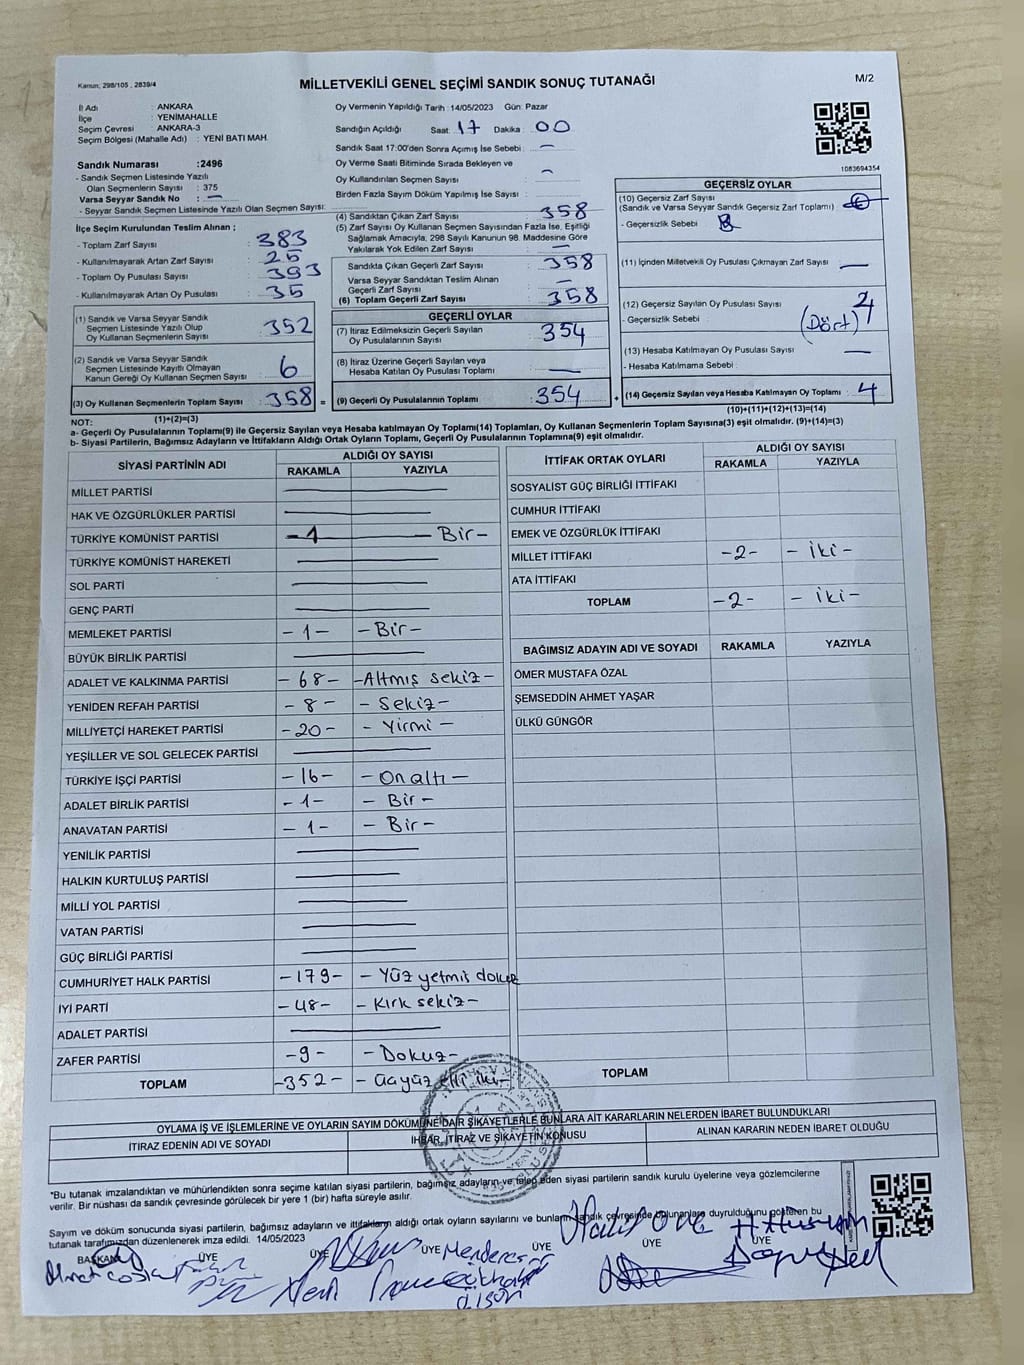 Kanun; 298/105 , 2839/4
MİLLETVEKİLİ GENEL SEÇİMİ SANDIK SONUÇ TUTANAĞI
M/2
İl Adı : ANKARA
İlçe : YENİMAHALLE
Seçim Çevresi : ANKARA-3
Seçim Bölgesi (Mahalle Adı) : YENİ BATI MAH.
Sandık Numarası :2496
- Sandık Seçmen Listesinde Yazılı
Olan Seçmenlerin Sayısı : 375
Varsa Seyyar Sandık No : —
- Seyyar Sandık Seçmen Listesinde Yazılı Olan Seçmen Sayısı:
İlçe Seçim Kurulundan Teslim Alınan ;
- Toplam Zarf Sayısı : 383
- Kullanılmayarak Artan Zarf Sayısı : 25
- Toplam Oy Pusulası Sayısı : 393
- Kullanılmayarak Artan Oy Pusulası : 35
(1) Sandık ve Varsa Seyyar Sandık
Seçmen Listesinde Yazılı Olup
Oy Kullanan Seçmenlerin Sayısı : 352
(2) Sandık ve Varsa Seyyar Sandık
Seçmen Listesinde Kayıtlı Olmayan
Kanun Gereği Oy Kullanan Seçmen Sayısı : 6
(3) Oy Kullanan Seçmenlerin Toplam Sayısı : 358 =
(1)+(2)=(3)
Oy Vermenin Yapıldığı Tarih : 14/05/2023 Gün: Pazar
Sandığın Açıldığı Saat: 17 Dakika : 00
Sandık Saat 17:00'den Sonra Açımış İse Sebebi : —
Oy Verme Saati Bitiminde Sırada Bekleyen ve
Oy Kullandırılan Seçmen Sayısı : —
Birden Fazla Sayım Döküm Yapılmış İse Sayısı :
(4) Sandıktan Çıkan Zarf Sayısı : 358
(5) Zarf Sayısı Oy Kullanan Seçmen Sayısından Fazla İse, Eşitliği
Sağlamak Amacıyla, 298 Sayılı Kanunun 98. Maddesine Göre
Yakılarak Yok Edilen Zarf Sayısı : —
Sandıkta Çıkan Geçerli Zarf Sayısı : 358
Varsa Seyyar Sandıktan Teslim Alınan
Geçerli Zarf Sayısı : —
(6) Toplam Geçerli Zarf Sayısı : 358
GEÇERLİ OYLAR
(7) İtiraz Edilmeksizin Geçerli Sayılan
Oy Pusulalarının Sayısı : 354
(8) İtiraz Üzerine Geçerli Sayılan veya
Hesaba Katılan Oy Pusulası Toplamı : —
(9) Geçerli Oy Pusulalarının Toplamı : 354 +
1083694354
GEÇERSİZ OYLAR
(10) Geçersiz Zarf Sayısı
(Sandık ve Varsa Seyyar Sandık Geçersiz Zarf Toplamı) :
- Geçersizlik Sebebi :
(11) İçinden Milletvekili Oy Pusulası Çıkmayan Zarf Sayısı : —
(12) Geçersiz Sayılan Oy Pusulası Sayısı : 4
- Geçersizlik Sebebi : (Dört)
(13) Hesaba Katılmayan Oy Pusulası Sayısı : —
- Hesaba Katılmama Sebebi :
(14) Geçersiz Sayılan veya Hesaba Katılmayan Oy Toplamı : 4
(10)+(11)+(12)+(13)=(14)
NOT:
a- Geçerli Oy Pusulalarının Toplamı(9) ile Geçersiz Sayılan veya Hesaba Katılmayan Oy Toplamı(14) Toplamları, Oy Kullanan Seçmenlerin Toplam Sayısına(3) eşit olmalıdır. (9)+(14)=(3)
b- Siyasi Partilerin, Bağımsız Adayların ve İttifakların Aldığı Ortak Oyların Toplamı, Geçerli Oy Pusulalarının Toplamına(9) eşit olmalıdır.
SİYASİ PARTİNİN ADI ALDIĞI OY SAYISI
RAKAMLA YAZIYLA
MİLLET PARTİSİ —
HAK VE ÖZGÜRLÜKLER PARTİSİ —
TÜRKİYE KOMÜNİST PARTİSİ -1- Bir-
TÜRKİYE KOMÜNİST HAREKETİ —
SOL PARTİ —
GENÇ PARTİ —
MEMLEKET PARTİSİ -1- -Bir-
BÜYÜK BİRLİK PARTİSİ —
ADALET VE KALKINMA PARTİSİ -68- -Altmış sekiz-
YENİDEN REFAH PARTİSİ -8- -Sekiz-
MİLLİYETÇİ HAREKET PARTİSİ -20- -Yirmi-
YEŞİLLER VE SOL GELECEK PARTİSİ —
TÜRKİYE İŞÇİ PARTİSİ -16- -On altı-
ADALET BİRLİK PARTİSİ -1- -Bir-
ANAVATAN PARTİSİ -1- -Bir-
YENİLİK PARTİSİ —
HALKIN KURTULUŞ PARTİSİ —
MİLLİ YOL PARTİSİ —
VATAN PARTİSİ —
GÜÇ BİRLİĞİ PARTİSİ —
CUMHURİYET HALK PARTİSİ -179- -Yüz yetmiş dokuz
İYİ PARTİ -48- -Kırk sekiz-
ADALET PARTİSİ —
ZAFER PARTİSİ -9- -Dokuz-
TOPLAM -352- -Üçyüz elli iki-
İTTİFAK ORTAK OYLARI ALDIĞI OY SAYISI
RAKAMLA YAZIYLA
SOSYALİST GÜÇ BİRLİĞİ İTTİFAKI
CUMHUR İTTİFAKI
EMEK VE ÖZGÜRLÜK İTTİFAKI
MİLLET İTTİFAKI -2- -İki-
ATA İTTİFAKI
TOPLAM -2- -İki-
BAĞIMSIZ ADAYIN ADI VE SOYADI RAKAMLA YAZIYLA
ÖMER MUSTAFA ÖZAL
ŞEMSEDDİN AHMET YAŞAR
ÜLKÜ GÜNGÖR
TOPLAM
OYLAMA İŞ VE İŞLEMLERİNE VE OYLARIN SAYIM DÖKÜMÜNE DAİR ŞİKAYETLERLE BUNLARA AİT KARARLARIN NELERDEN İBARET BULUNDUKLARI
İTİRAZ EDENİN ADI VE SOYADI
İHBAR, İTİRAZ VE ŞİKAYETİN KONUSU
ALINAN KARARIN NEDEN İBARET OLDUĞU
*Bu tutanak imzalandıktan ve mühürlendikten sonra seçime katılan siyasi partilerin, bağımsız adayların ve talep eden siyasi partilerin sandık kurulu üyelerine veya gözlemcilerine
verilir. Bir nüshası da sandık çevresinde görülecek bir yere 1 (bir) hafta süreyle asılır.
Sayım ve döküm sonucunda siyasi partilerin, bağımsız adayların ve ittifakların aldığı ortak oyların sayılarını ve bunların sandık çevresinde bulunanlara duyrulduğunu gösteren bu
tutanak tarafımızdan düzenlenerek imza edildi. 14/05/2023
BAŞKAN ÜYE ÜYE ÜYE ÜYE ÜYE ÜYE
Menderes